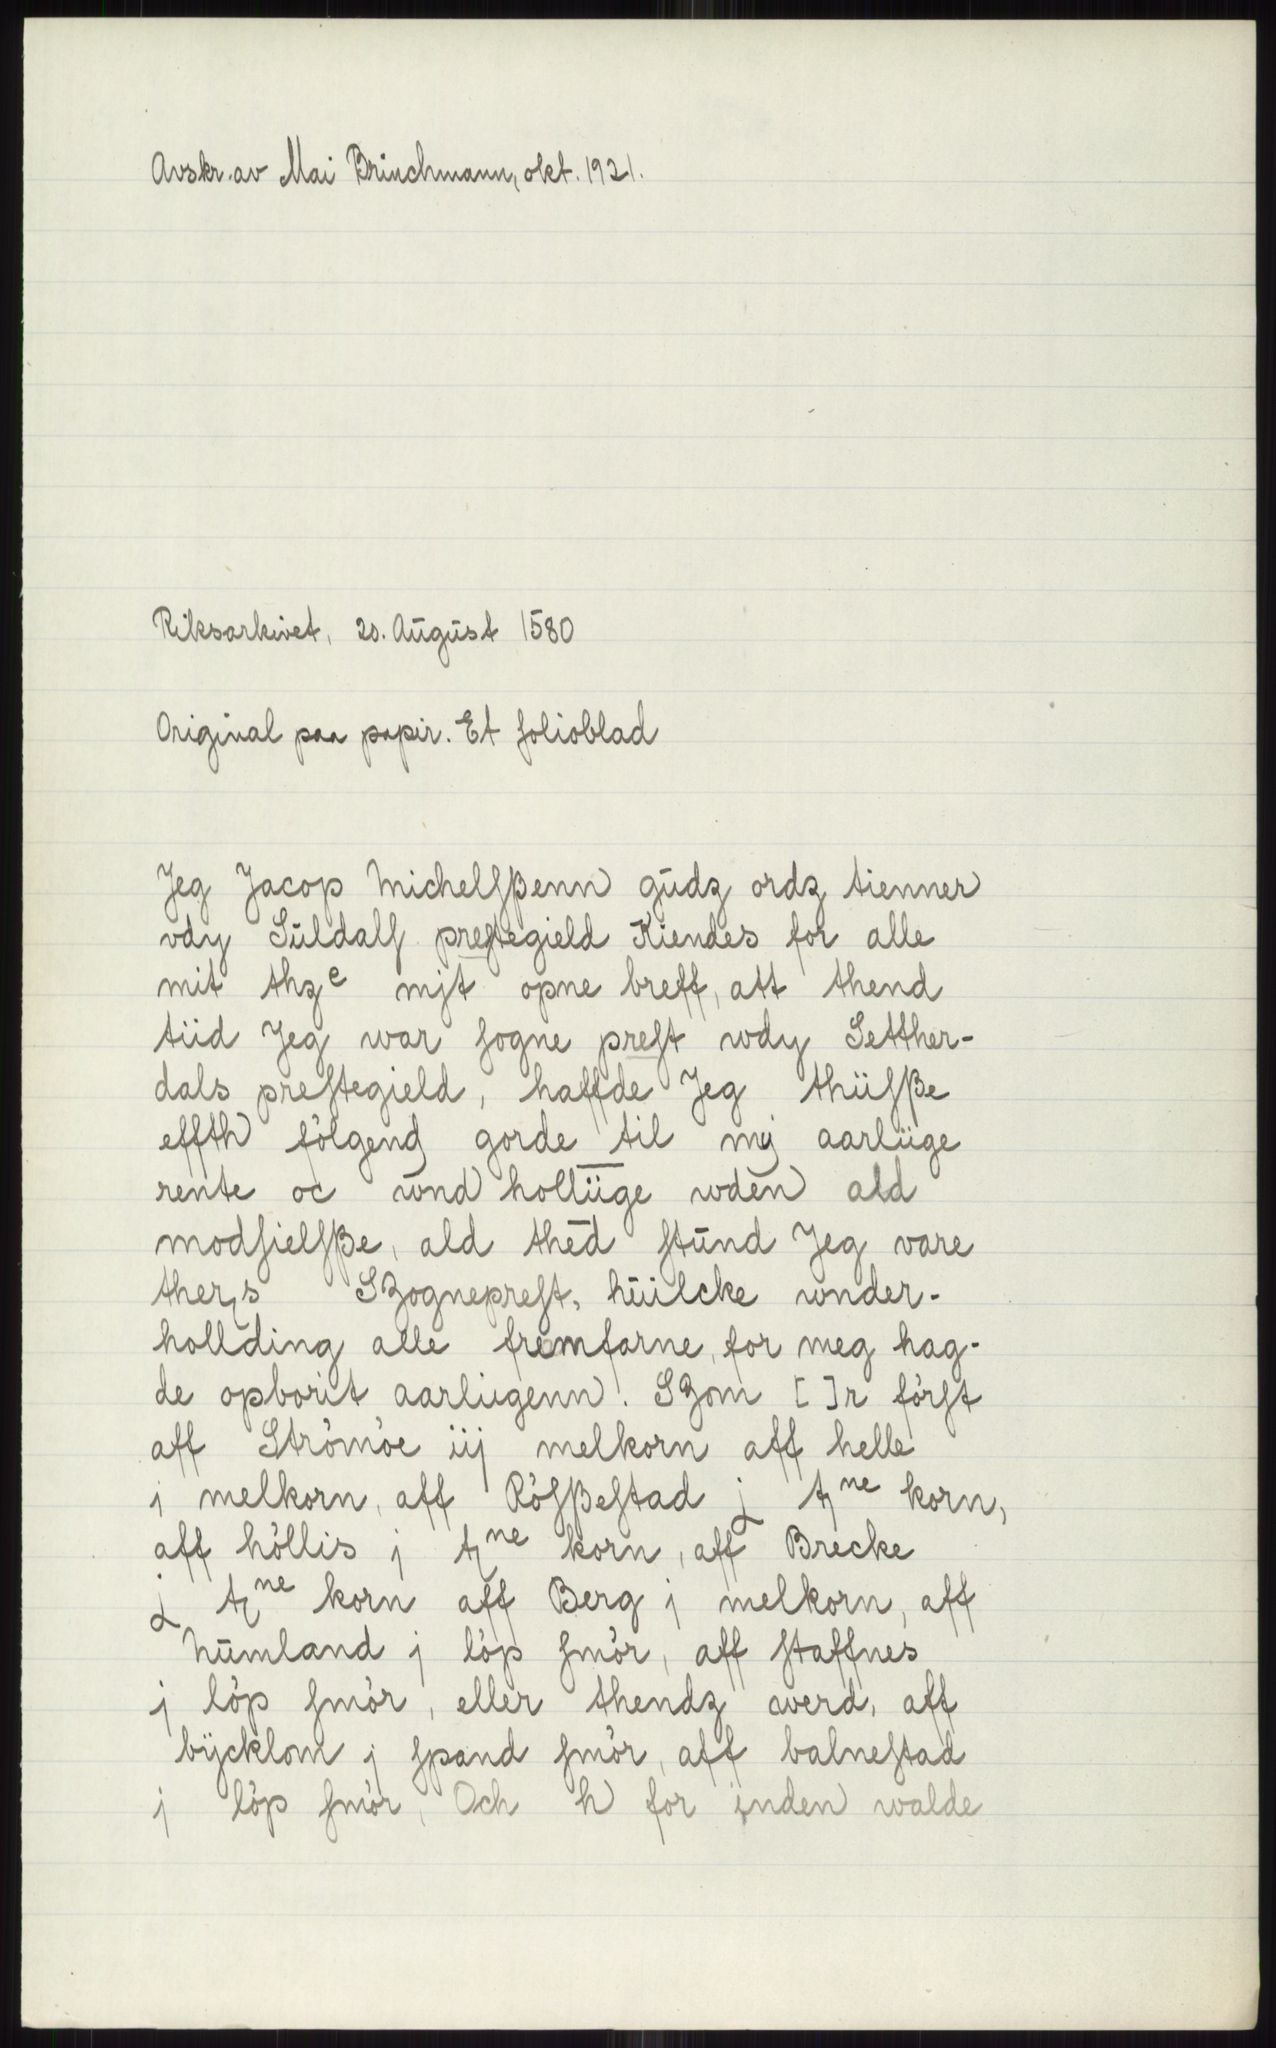 Avskr. av Mai Brinchmann, okt. 1921.
Riksarkivet, 20. Aūgūst 1580
Original paa papir. Et folioblad
Jeg Jacop Michelſßenn gūdz ordz tienner
vdy Sūldalſ preſtegield Kiendes for alle
mit thz<sup>e</sup> mjt opne breff, att thend
tiid Jeg war ſogne preſt wdy Setther-
dals preſtegield, haffde Jeg thüſße
effth fölgend gorde til mj aarliige
rente oc wnd holliige wden ald
modſielſße, ald thed ſtūnd Jeg vare
thers SZogнepreſt, hūilcke wnder-
hollding alle fremfarne, for meg hag-
de opborit aarliigenn. SZom [ ]r förſt
aff Strömöe iij melkorn aff helle
j melkorn, aff Röſßeſtad j t<sup>ne</sup> korn,
aff höllis j t<sup>ne</sup> korn, aff Brecke
j t<sup>ne</sup> korn aff Berg j melkorn, aff
hūmland j löp ſmör, aff ſtaffnes
j löp ſmör, eller thendz werd, aff
bÿcklom j ſpand ſmör, aff balneſtad
j löp ſmör, Och h for inden walde